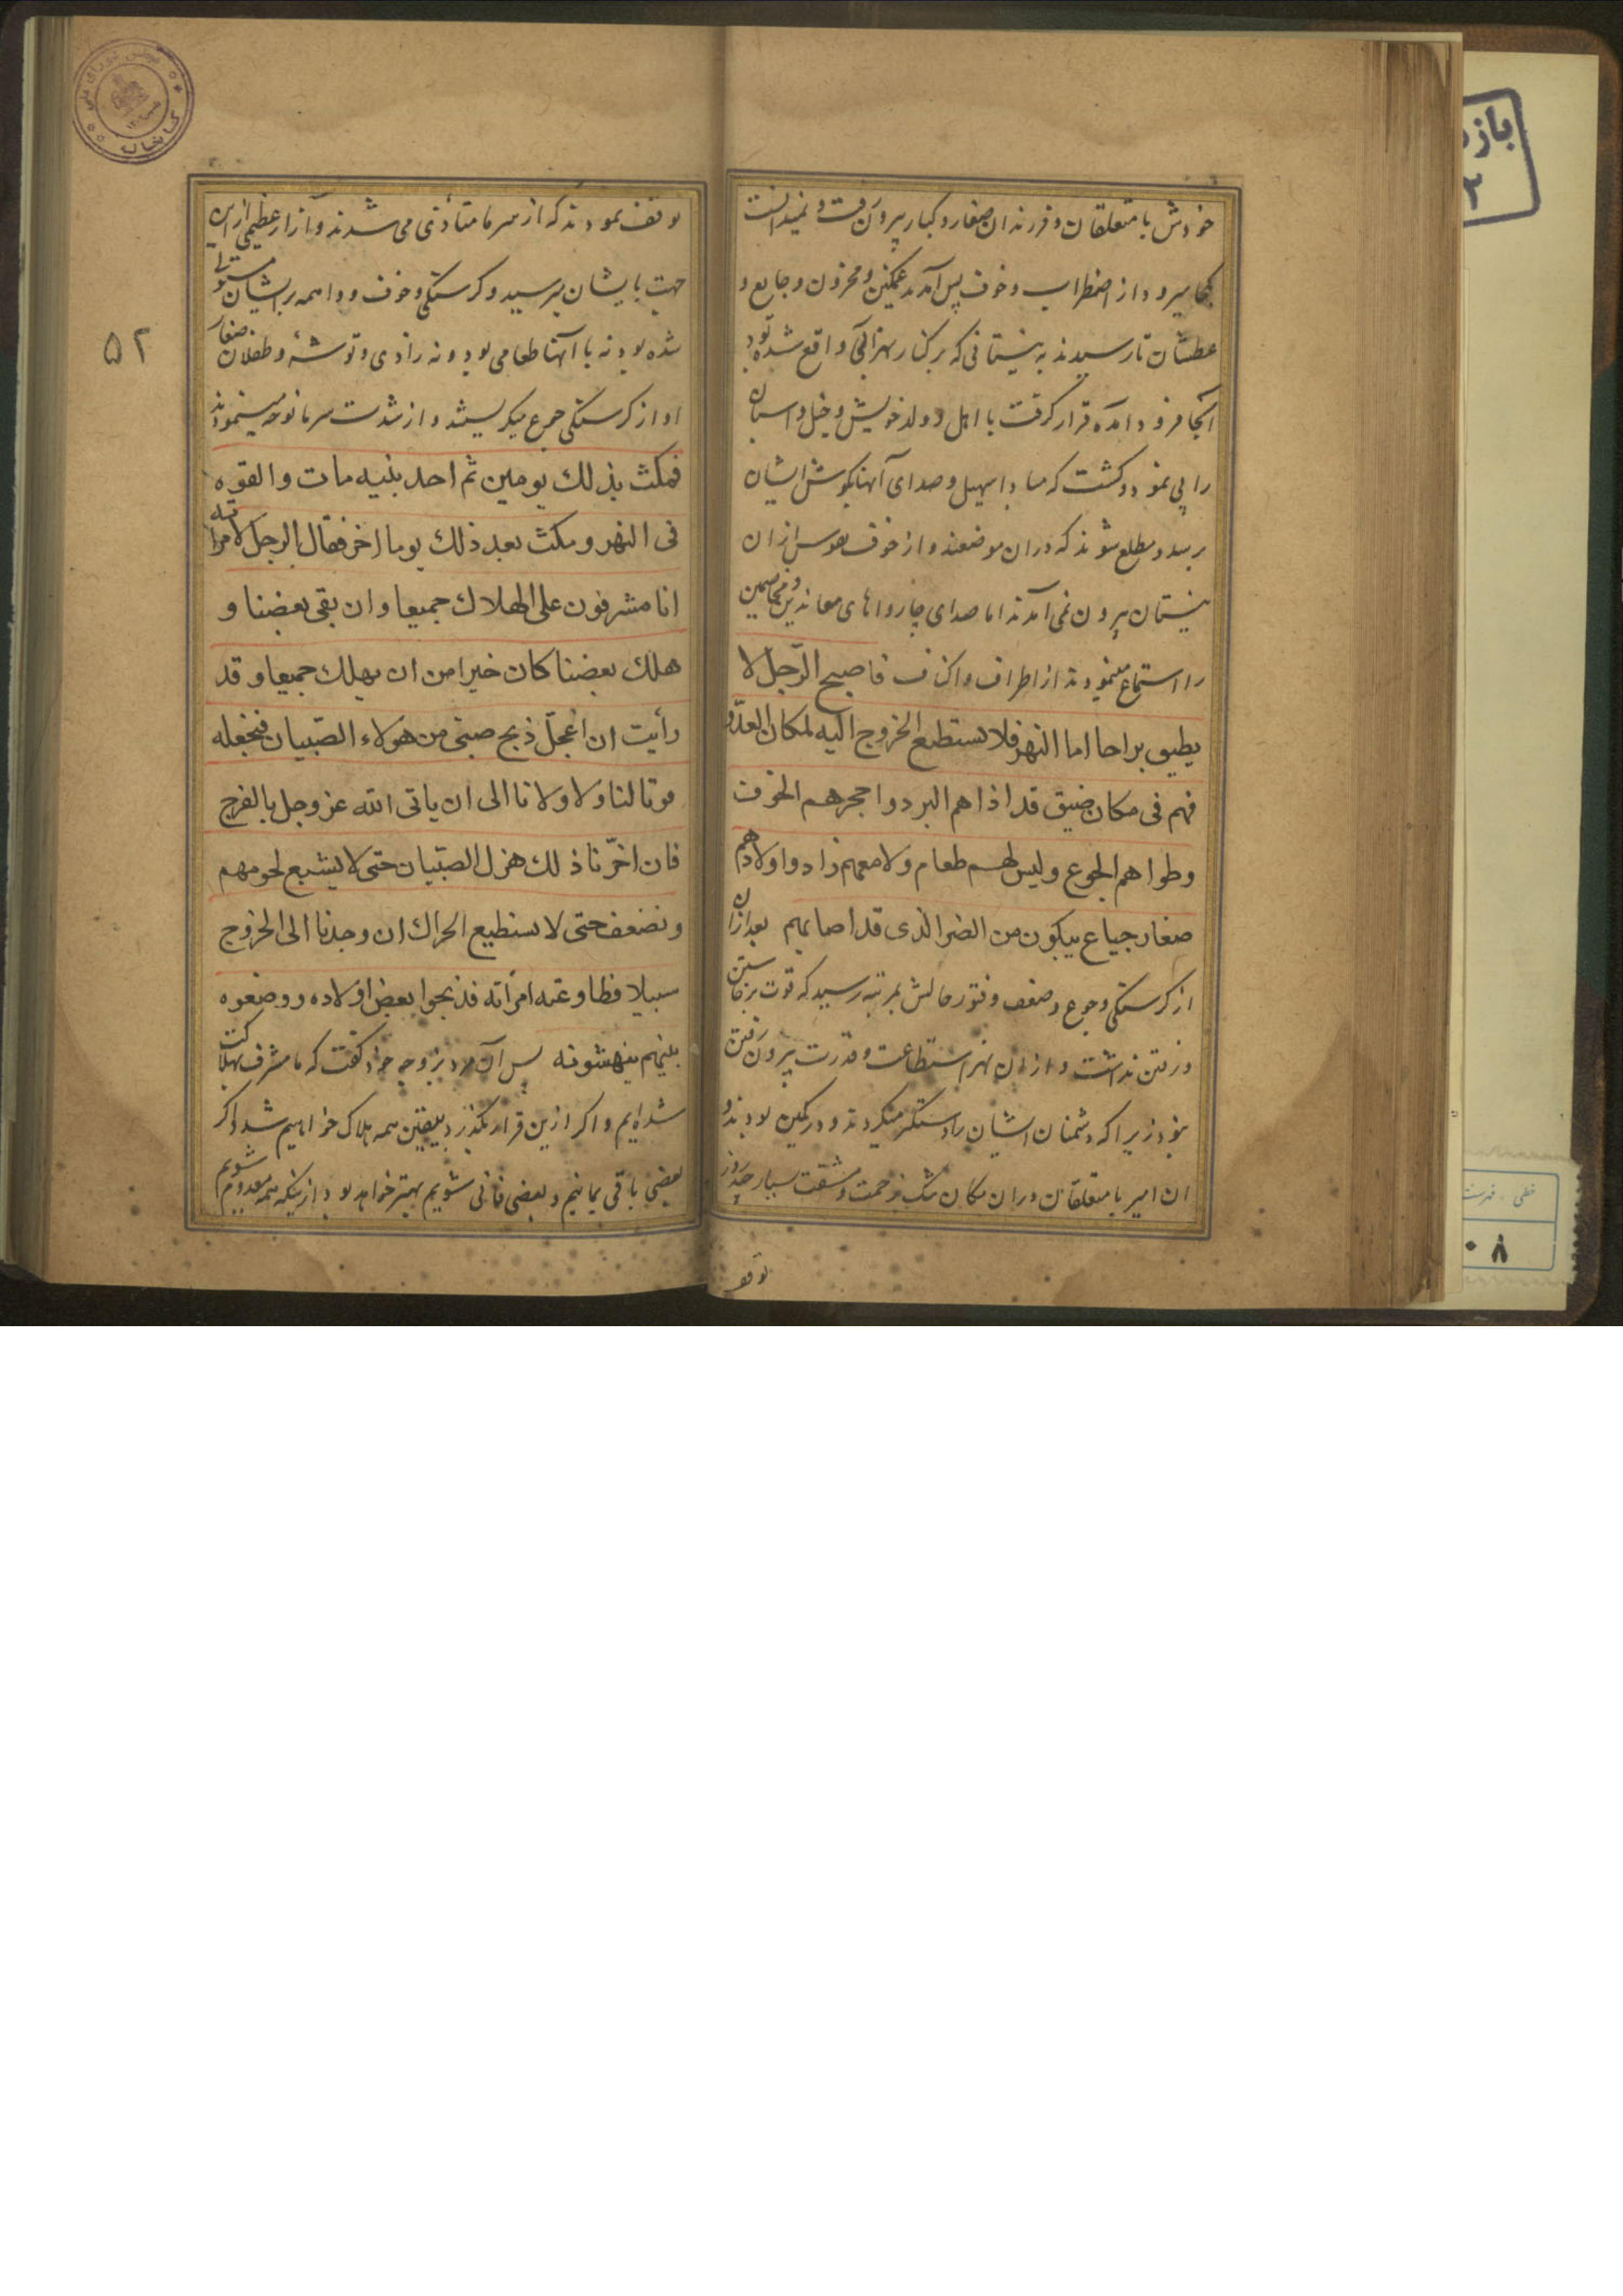 خودش با متعلقان و فرزندان صغار و کبار بیرون رفت و نمیدانست
کجا میرود از اضطراب و خوف پس آمدند غمگین و محزون و جایع و
عطشان تا رسیدند به نیستانی که بر کنار نهر آبی واقع شده بود
آنجا فرود آمده قرار گرفت با اهل و ولد خویش و خیل و اسبان
را پی نمود و کشت که مبادا سهیل و صدای آنها بگوش ایشان
برسد و مطلع شوند که در ان موضعند و از خوف نفوس از ان
نیستان بیرون نمی آمدند اما صدای چارواهای معاندین و مخاصمین
را استماع مینمودند از اطراف و اکناف فاصبح الرّجل لا
یطیق براحا اما النهر فلا تستطیع الخروج الیه لمکان العدّو
فهم فی مکان ضیق قد اذاهم البرد و احجرهم الخوف
و طواهم الجوع و لیس لهم طعام و لا معهم زاد و اولادهم
صغار جیاع یبکون من الضر الذی قد اصابهم بعد ازان
از کرسنکی و جوع و ضعف و فتور حالش بمرتبه رسید که قوت برخاستن
و رفتن نداشت و از ان نهر استطاعت و قدرت بیرون رفتن
نبود زیرا که دشمنان ایشان را دستگیر میکردند و در کمین بودند و
ان امیر با متعلقان در ان مکان تنک بزحمت و مشقت بسیار چند روز
توقف
توقف نمودند که از سرما متأذی می شدند و آزار عظیمی از این
جهت بایشان میرسید و کرسنکی و خوف و واهمه بر ایشان مستولی
شده بود نه با آنها طعامی بود و نه زادی و توشهٔ و طفلان صغار
او از کرسنکی جوع میکریستند و از شدت سرما نوحه مینمودند
فمکث بذلك یومین ثم احد بنیه مات و القوه
فی النهر و مکث بعد ذلك یوما اخر فقال الرجل لامراته
انا مشرفون علی الهلاك جمیعا و ان بقی بعضنا و
هلك بعضنا کان خیرا من ان یهلك جمیعا و قد
رأیت ان اعجّل ذبح صبّی من هولاء الصّبیان فنجعله
قوتا لنا و لاولادنا الی ان یاتی الله عز و جل بالفرج
فان اخّرنا ذلك هزل الصبّیان حتی لا یشبع لحومهم
و نضعف حتی لا نستطیع الحراك ان وجدنا الی الخروج
سبیلا فطاوعته امرأته فذبحوا بعض اولاده و وضعوه
بینهم ینهشونه پس آن مرد بزوجه خود گفت که ما مشرف بهلاکت
شده ایم و اکر ازین قرار بکذرد بیقین همه هلاک خواهیم شد و اکر
بعضی باقی بمانیم و بعضی فانی شویم بهتر خواهد بود از ینکه همه معدوم شویم
۵۲
کتابخانه
باز
۲
خطی - فهرست
۰۸